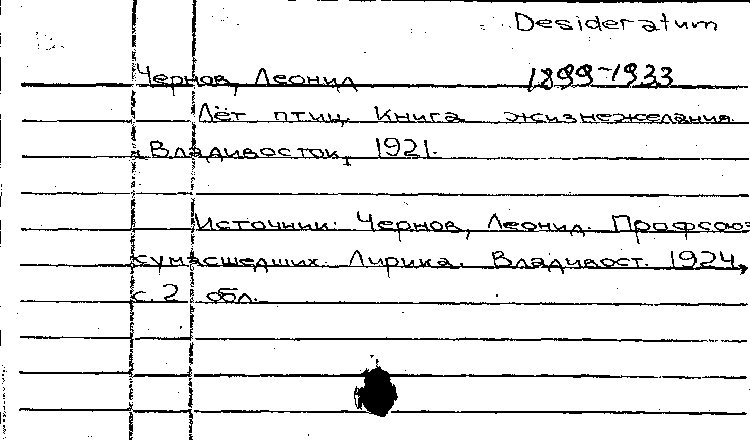 Desideratum
Чернов, Леонид 1899-1933
Лёт птиц. Книга жизнежелания.
Владивосток, 1921.
Источник: Чернов, Леонид. Профсоюз
сумасшедших. Лирика. Владивост. 1924,
с. 2 обл.